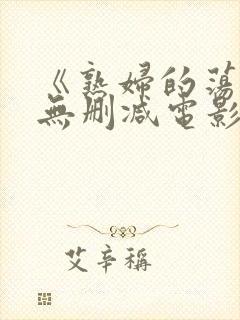 《熟婦的蕩
無删减電影
艾辛稱